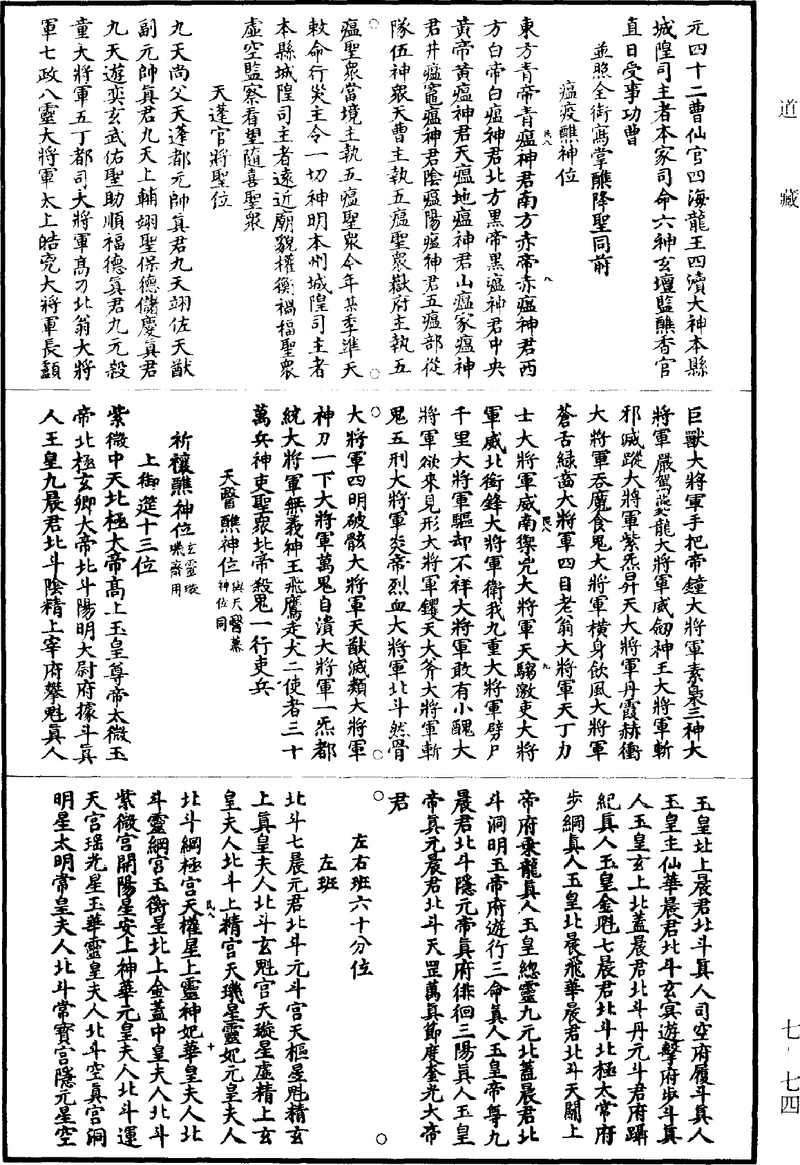 元四十二曹仙官四海龍王四瀆大神本縣
城隍司主者本家司命六神玄壇監醮香官
直日受事功曹
並照全銜寫掌醮降聖同前
瘟疫醮神位
東方青帝青瘟神君南方赤帝赤瘟神君西
方白帝白瘟神君北方黑帝黑瘟神君中央
黃帝黃瘟神君天瘟地瘟神君山瘟家瘟神
君井瘟竈瘟神君陰瘟陽瘟神君五瘟部從
隊伍神衆天曹主執五瘟聖衆嶽府主執五
瘟聖衆當境主執五瘟聖衆今年某季準天
敕命行災主令一切神明本州城隍司主者
本縣城隍司主者遠近廟貌權衡禍福聖衆
虛空監察看望隨喜聖衆
天蓬官將聖位
九天尚父天蓬都元帥真君九天翊佐天猷
副元帥真君九天上輔翊聖保德儲慶真君
九天遊奕玄武佑聖助順福德真君九元殺
童大將軍五丁都司大將軍高刁北翁大將
軍七政八靈大將軍太上皓兇大將軍長顱
巨獸大將軍手把帝鐘大將軍素梟三神大
將軍嚴駕夔龍大將軍威劒神王大將軍斬
邪滅蹤大將軍紫炁昇天大將軍丹霞赫衝
大將軍吞魔食鬼大將軍橫身飲風大將軍
蒼舌綠齒大將軍四目老翁大將軍天丁力
士大將軍威南禦兇大將軍天騶激戾大將
軍威北銜鋒大將軍衛我九重大將軍劈尸
千里大將軍驅却不祥大將軍敢有小醜大
將軍欲來見形大將軍钁天大斧大將軍斬
鬼五刑大將軍炎帝烈血大將軍北斗然骨
大將軍四明破骸大將軍天猷滅類大將軍
神刀一下大將軍萬鬼自潰大將軍一炁都
統大將軍無義神王飛鷹走犬二使者三十
萬兵神吏聖衆北帝殺鬼一行吏兵
天醫醮神位與天醫幕神位同
祈禳醮神位玄靈璇璣齋用
上御筵十三位
紫微中天北極大帝高上玉皇尊帝太微玉
帝北極玄卿大帝北斗陽明大尉府據斗真
人玉皇九晨君北斗陰精上宰府攀魁真人
玉皇北上晨君北斗真人司空府履斗真人
玉皇主仙華晨君北斗玄冥遊擊府步斗真
人玉皇玄上北蓋晨君北斗丹元斗君府躡
紀真人玉皇金魁七晨君北斗北極太常府
步綱真人玉皇北晨飛華晨君北斗天關上
帝府乘龍真人玉皇總靈九元北蓋晨君北
斗洞明玉帝府遊行三命真人玉皇帝尊九
晨君北斗隱元帝真府俳徊三陽真人玉皇
帝真元晨君北斗天罡萬真節度奎光大帝
君
左右班六十分位
左班
北斗七晨元君北斗元斗宮天樞星魁精玄
上真皇夫人北斗玄魁宮天璇星虛精上玄
皇夫人北斗上精宮天璣星靈妃元皇夫人
北斗綱極宮天權星上靈神妃華皇夫人北
斗靈綱宮玉衡星北上金蓋中皇夫人北斗
紫微宮開陽星安上神華元皇夫人北斗運
天宮瑤光星玉華靈皇夫人北斗空真宮洞
明星太明常皇夫人北斗常寶宮隱元星空
道藏
七-七四